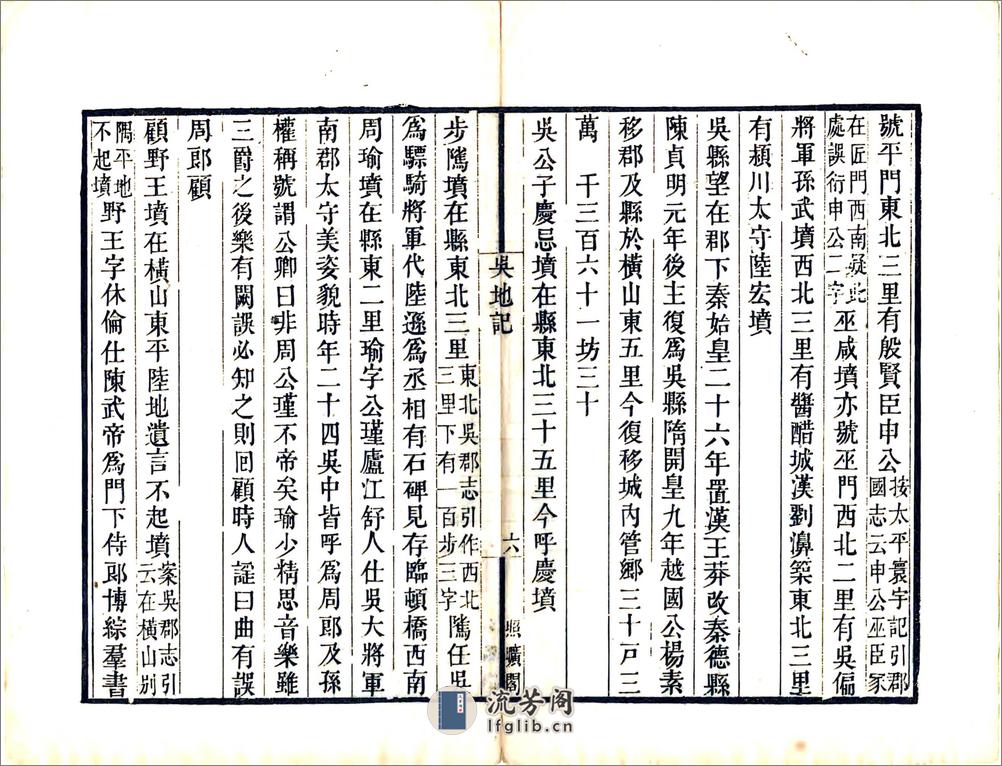 號平門東北三里有殷賢臣申公按太平寰宇記引郡國志云申公巫臣冢
在匠門西南疑此處誤衍申公二字巫咸墳亦號巫門西北二里有吳偏
將軍孫武墳西北三里有醬醋城漢劉濞築東北三里
有潁川太守陸宏墳
吳縣望在郡下秦始皇二十六年置漢王莽改秦德縣
陳貞明元年後主復爲吳縣隋開皇九年越國公楊素
移郡及縣於橫山東五里今復移城內管鄉三十戸三
萬 千三百六十一坊三十
吳公子慶忌墳在縣東北三十五里今呼慶墳
吳地記
六
照曠閣
步隲墳在縣東北三里東北吳郡志引作西北三里下有一百步三字隲任吳
爲驃騎將軍代陸遜爲丞相有石碑見存臨頓橋西南
周瑜墳在縣東二里瑜字公瑾廬江舒人仕吳大將軍
南郡太守美姿貌時年二十四吳中皆呼爲周郎及孫
權稱號謂公卿曰非周公瑾不帝矣瑜少精思音樂雖
三爵之後樂有闕誤必知之則回顧時人謡曰曲有誤
周郎顧
顧野王墳在橫山東平陸地遺言不起墳案吳郡志引云在橫山别
隅平地不起墳野王字休倫仕陳武帝爲門下侍郎博綜羣書
流芳阁
lfglib.cn